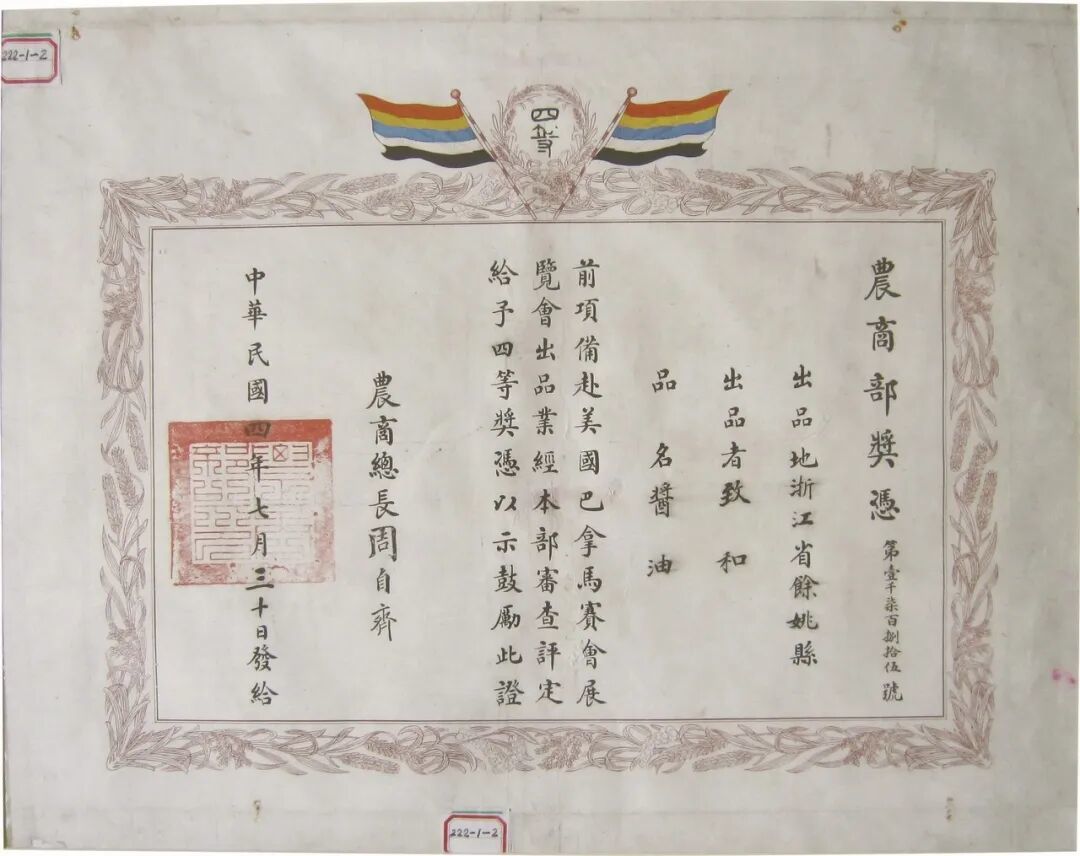 222-1-2
四等
農商部獎憑 第壹千柒百捌拾伍號
出品地浙江省餘姚縣
出品者致和
品名醬油
前項備赴美國巴拿馬賽會展
覽會出品業經本部審查評定
給予四等獎憑以示鼓勵此證
農商總長周自齊
中華民國四年七月三十日發給
222-1-2